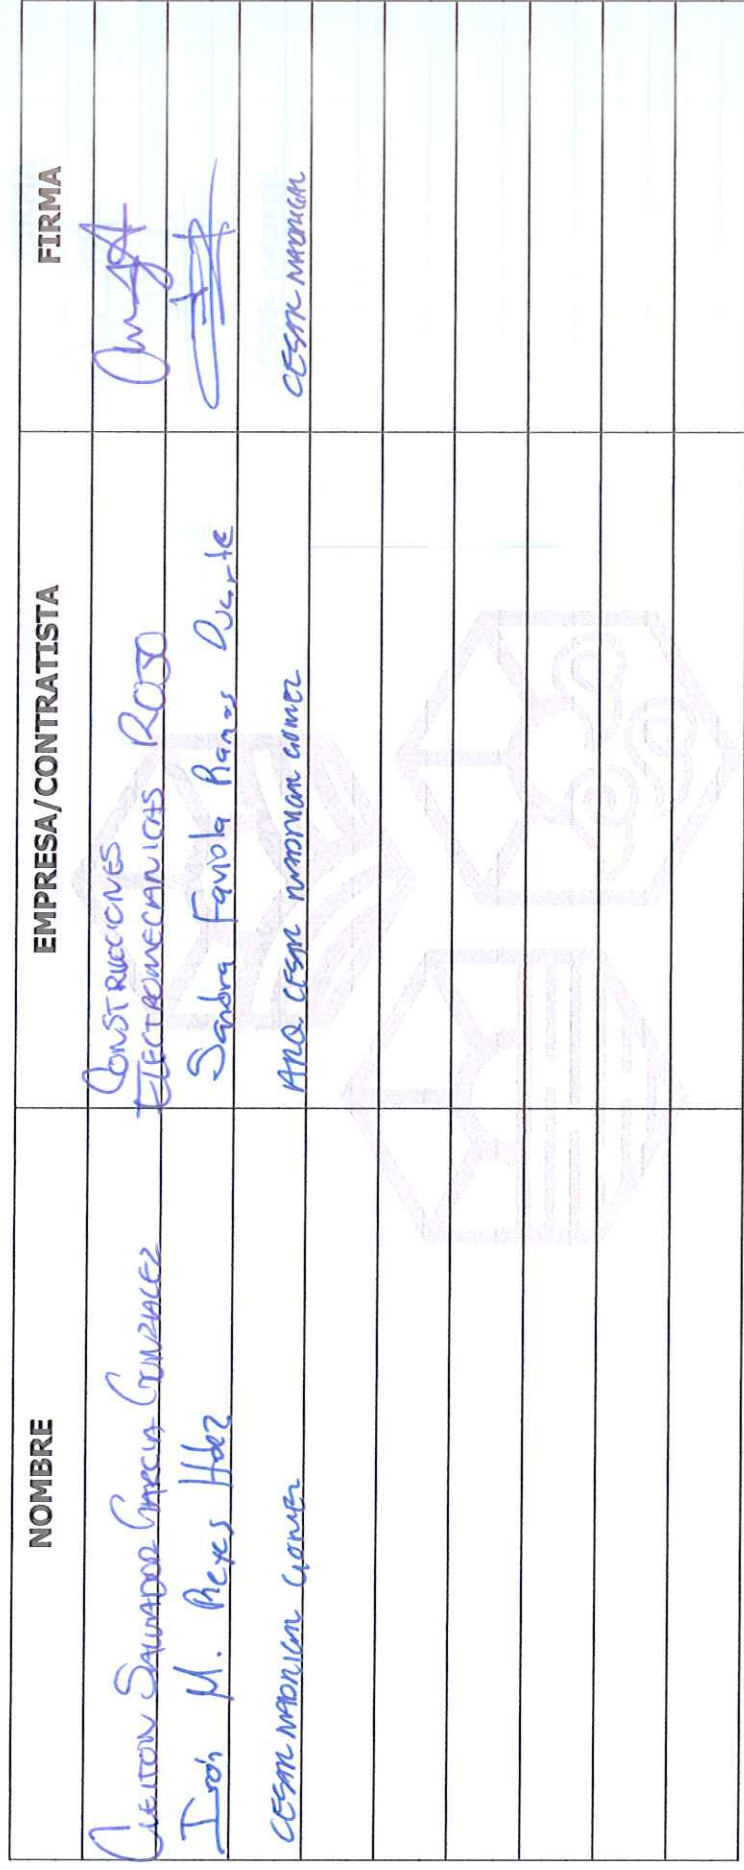 NOMBRE EMPRESA/CONTRATISTA FIRMA
CLEITON SALVADOR GARCIA GONZALEZ CONSTRUCCIONES
ELECTROMECANICAS ROJO
Irán M. Reyes Hdez Sandra Faviola Ramos Duarte
CESAR MADRIGAL GOMEZ ARQ. CESAR MADRIGAL GOMEZ CESAR MADRIGAL